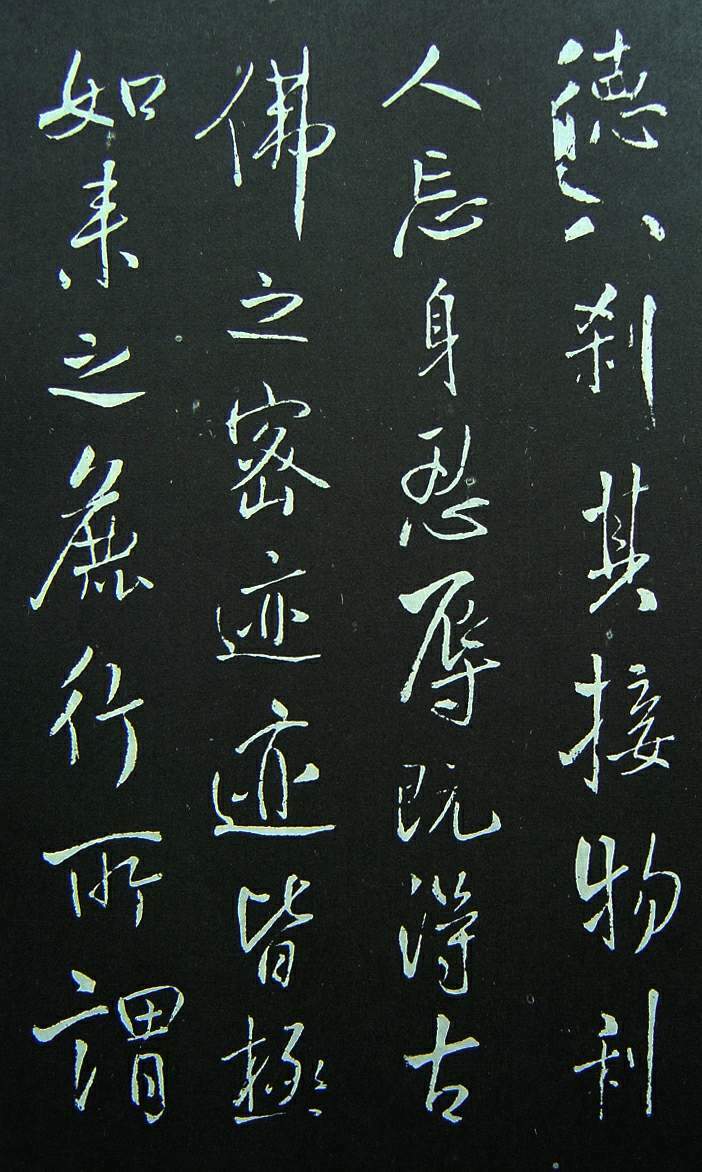 德八刹其接物利
人忘身忍辱既得古
佛之密迹迹皆極
如来之麁行所謂